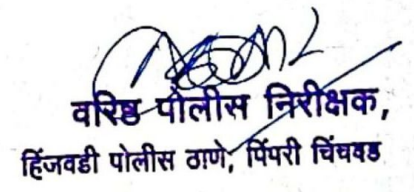 वरिष्ठ पोलीस निरीक्षक,
हिंजवडी पोलीस ठाणे, पिंपरी चिंचवड